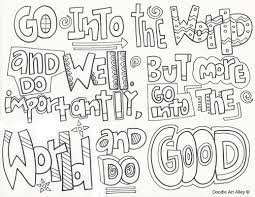 GO INTO the WoRlD
AND DO Well. BuT MoRe
importantly, GO INTO THE
WoRlD AND DO GOOD
Doodle Art Alley ©